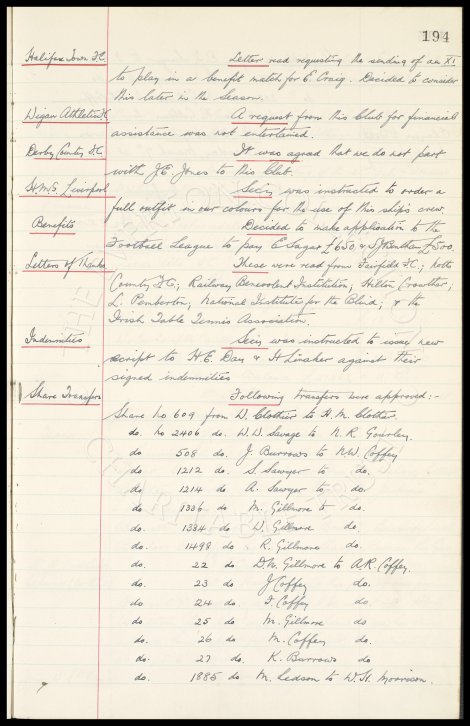 194
Halifax Town F.C. Letter read requesting the sending of an XI
to play in a benefit match for E. Craig. Decided to consider
this later in the Season.
Wigan Athletic F.C. A request from this Club for financial
assistance was not entertained.
Derby County F.C. It was agreed that we do not part
with J.E. Jones to this Club.
H.M.S. Liverpool Secy. was instructed to order a
full outfit in our colours for the use of this ship's crew.
Benefits Decided to make application to the
Football League to pay E. Sagar £650 & S.J. Bentham £500.
Letters of Thanks These were read from Fairfield F.C.; Notts
County F.C.; Railway Benevolent Institution; Hilton Crowther;
L. Pemberton; National Institute for the Blind; & the
Irish Table Tennis Association.
Indemnities Secy. was instructed to issue new
script to H.E. Day & H. Linaker against their
signed indemnities
Share Transfers Following transfers were approved:-
Share No 609 from W. Clother to H.M. Clother.
do. No 2406 do. W.W. Savage to N.R. Gourley.
do 508 do. J. Burrows to N.W. Coffey
do. 1212 do. S. Sawyer to do.
do 1214 do A. Sawyer to do.
do 1336 do. M. Gillmore to do.
do. 1334 do W. Gillmore do.
do. 1498 do R. Gillmore do.
do. 22 do D.W. Gillmore to A.R. Coffey.
do. 23 do J Coffey do.
do 24 do. F. Coffey do
do 25 do M. Gillmore do
do. 26 do M. Coffey do.
do. 27 do. K. Burrows do
do. 1885 do M. Ledson to W.H. Morrison.